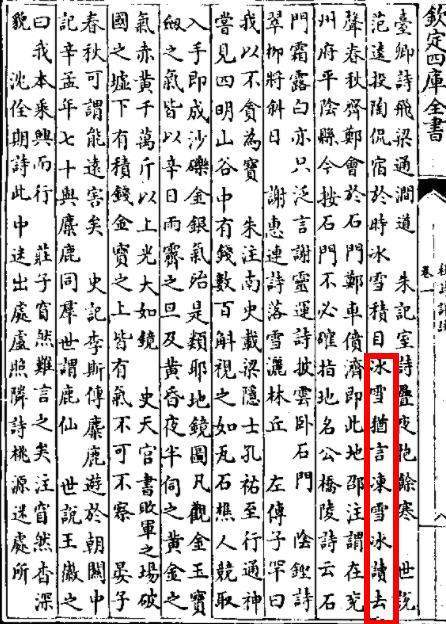 欽定四庫全書
卷一
臺卿詩飛梁通澗道　朱記室詩疊夜抱餘寒　世説
范逵投陶侃宿於時冰雪積日冰雪猶言凍雪冰讀去
聲春秋齊鄭會於石門鄭車僨濟即此地邵注謂在兖
州府平陰縣今按石門不必確指地名公橋陵詩云石
門霜露白亦只泛言謝靈運詩披雲卧石門　陰鏗詩
翠柳將斜日　謝惠連詩落雪灑林丘　左傳子罕曰
我以不貪為寶　朱注南史載梁隱士孔祐至行通神
嘗見四明山谷中有錢數百斛視之如瓦石樵人競取
入手即成沙礫金銀氣殆是類耶地鏡圖凡觀金玉寶
劍之氣皆以辛日雨霽之旦及黄昏夜半伺之黄金之
氣赤黄千萬斤以上光大如鏡　史天官書敗軍之場破
國之墟下有積錢金寶之上皆有氣不可不察　晏子
春秋可謂能遠害矣　史記李斯傳麋鹿遊於朝關中
記辛孟年七十與麋鹿同羣世謂鹿仙　世説王徽之
曰我本乘興而行　莊子窅然難言之矣注窅然杳深
貌　沈佺期詩此中迷出處盧照隣詩桃源迷處所